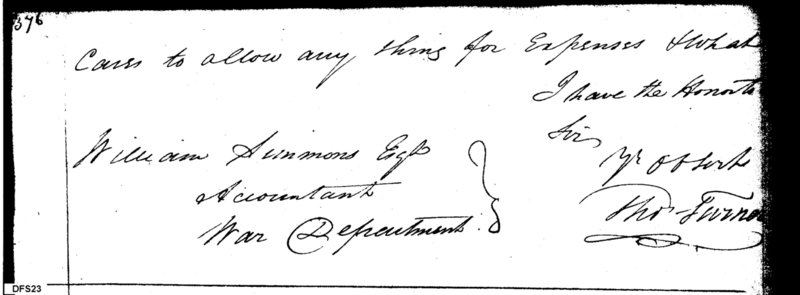 376
Cases to allow any thing for Expenses & what
I have the Honor to
Sir
Yr Ob Servt
William Simmons Esqr
Accountant
War Department
Thos Turner
DFS23